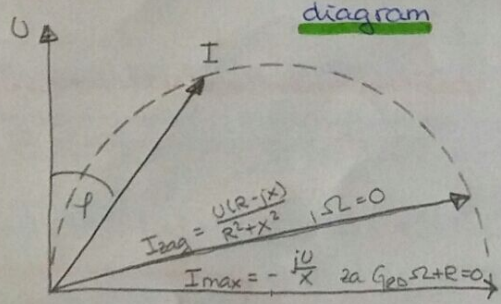 diagram
U
I
φ
I_zag = U(R-jX) / R²+X² , Ω=0
I_max = - jU / X za G_RD Ω+R=0